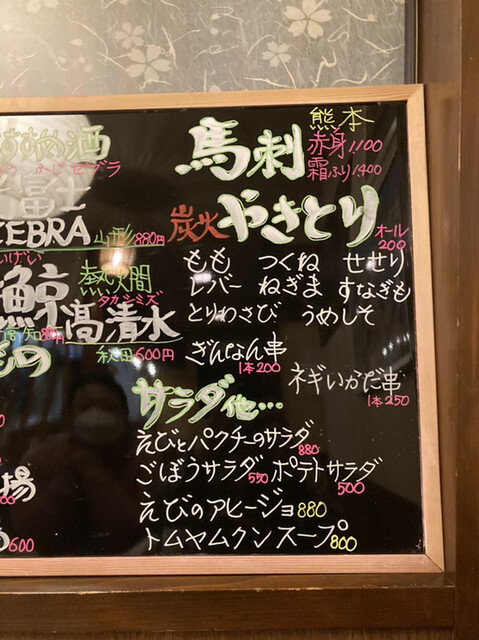 すすめ酒
熊本
馬刺
赤身1,100
霜ふり1400
ZEBRA 山形880円
炭火 やきとり オール200
もも つくね せせり
レバー ねぎま すなぎも
とりわさび うめしそ
ぎんなん串
1本200
ネギいかだ串
1本250
鯨
熱燗
タカシミズ
高清水
秋田600円
サラダ他…
えびとパクチーのサラダ
880
ごぼうサラダ550 ポテトサラダ
500
えびのアヒージョ880
トムヤムクンスープ800
場
600